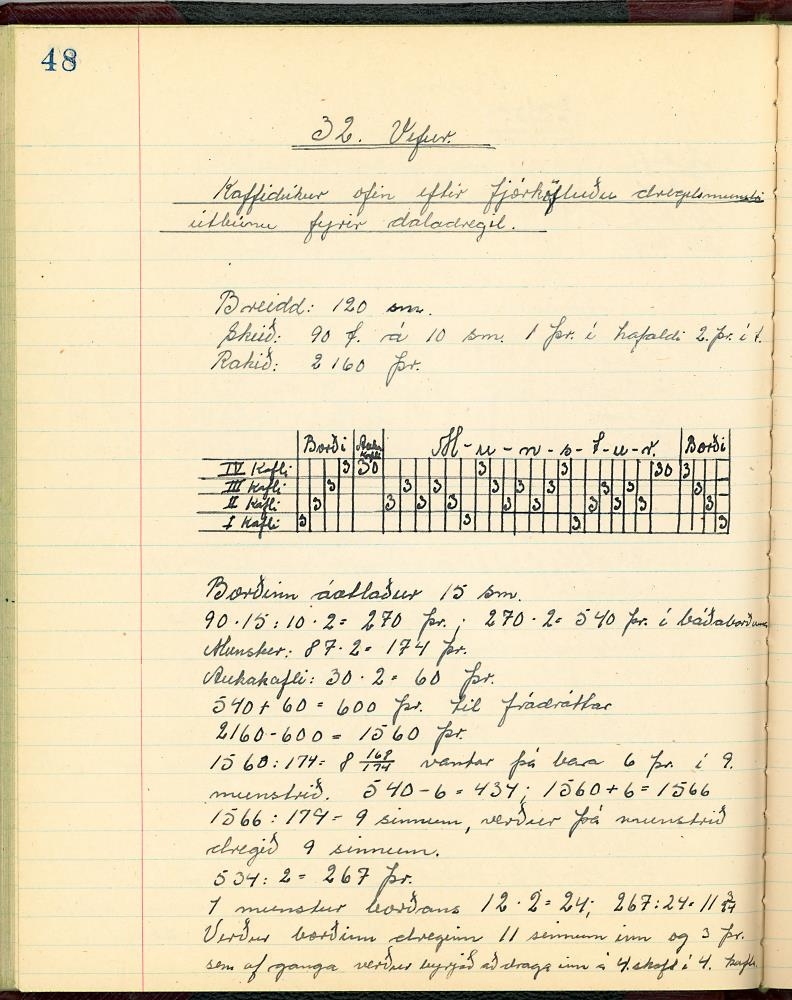 48
32. Vefur.
Kaffidúkur ofin eftir fjórköfluðu dregilsmunstri
útbúnu fyrir daladregil.
Breidd: 120 sm.
Skeið: 90 t. á 10 sm. 1 þr. í hafaldi 2. þr. í t.
Rakið: 2160 þr.
Borði Auka kafli M-u-n-s-t-u-r. Borði
IV Kafli 3 30 3 3 30 3
III Kafli 3 3 3 3 3 3 3 3 3
II Kafli 3 3 3 3 3 3 3 3 3
I Kafli 3 3 3 3
Borðinn áætlaður 15 sm.
90·15:10·2= 270 þr.; 270·2= 540 þr. í báða borðana
Munster: 87·2= 174 þr.
Aukakafli: 30·2= 60 þr.
540+60= 600 þr. til frádráttar
2160-600= 1560 þr.
1560:174= 8 168/174 vantar þá bara 6 þr. í 9.
munstrið. 540-6= 434; 1560+6= 1566
1566:174= 9 sinnum, verður þá munstrið
dregið 9 sinnum.
534:2= 267 þr.
1 munstur borðans 12·2= 24; 267:24= 11 3/24
Verður borðinn dreginn 11 sinnum inn og 3 þr.
sem af ganga verður byrjað að draga inn á 4. skaft í 4. kafla.